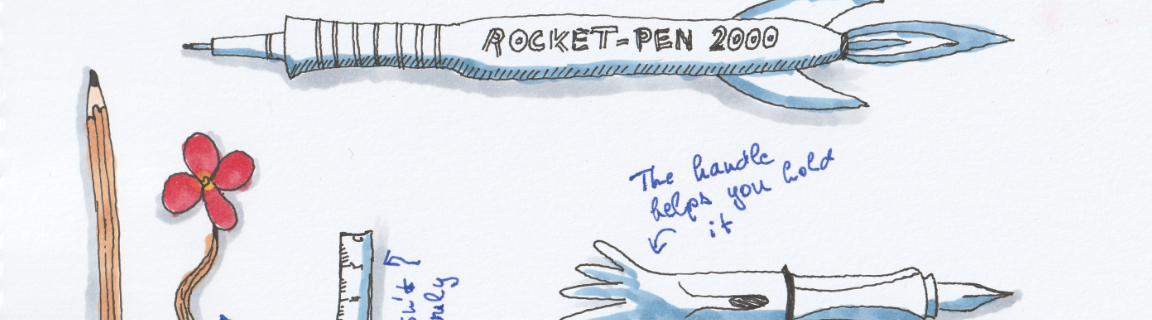 ROCKET-PEN 2000
The handle
helps you hold
it